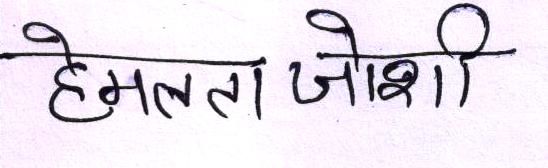 हेमलता जोशी